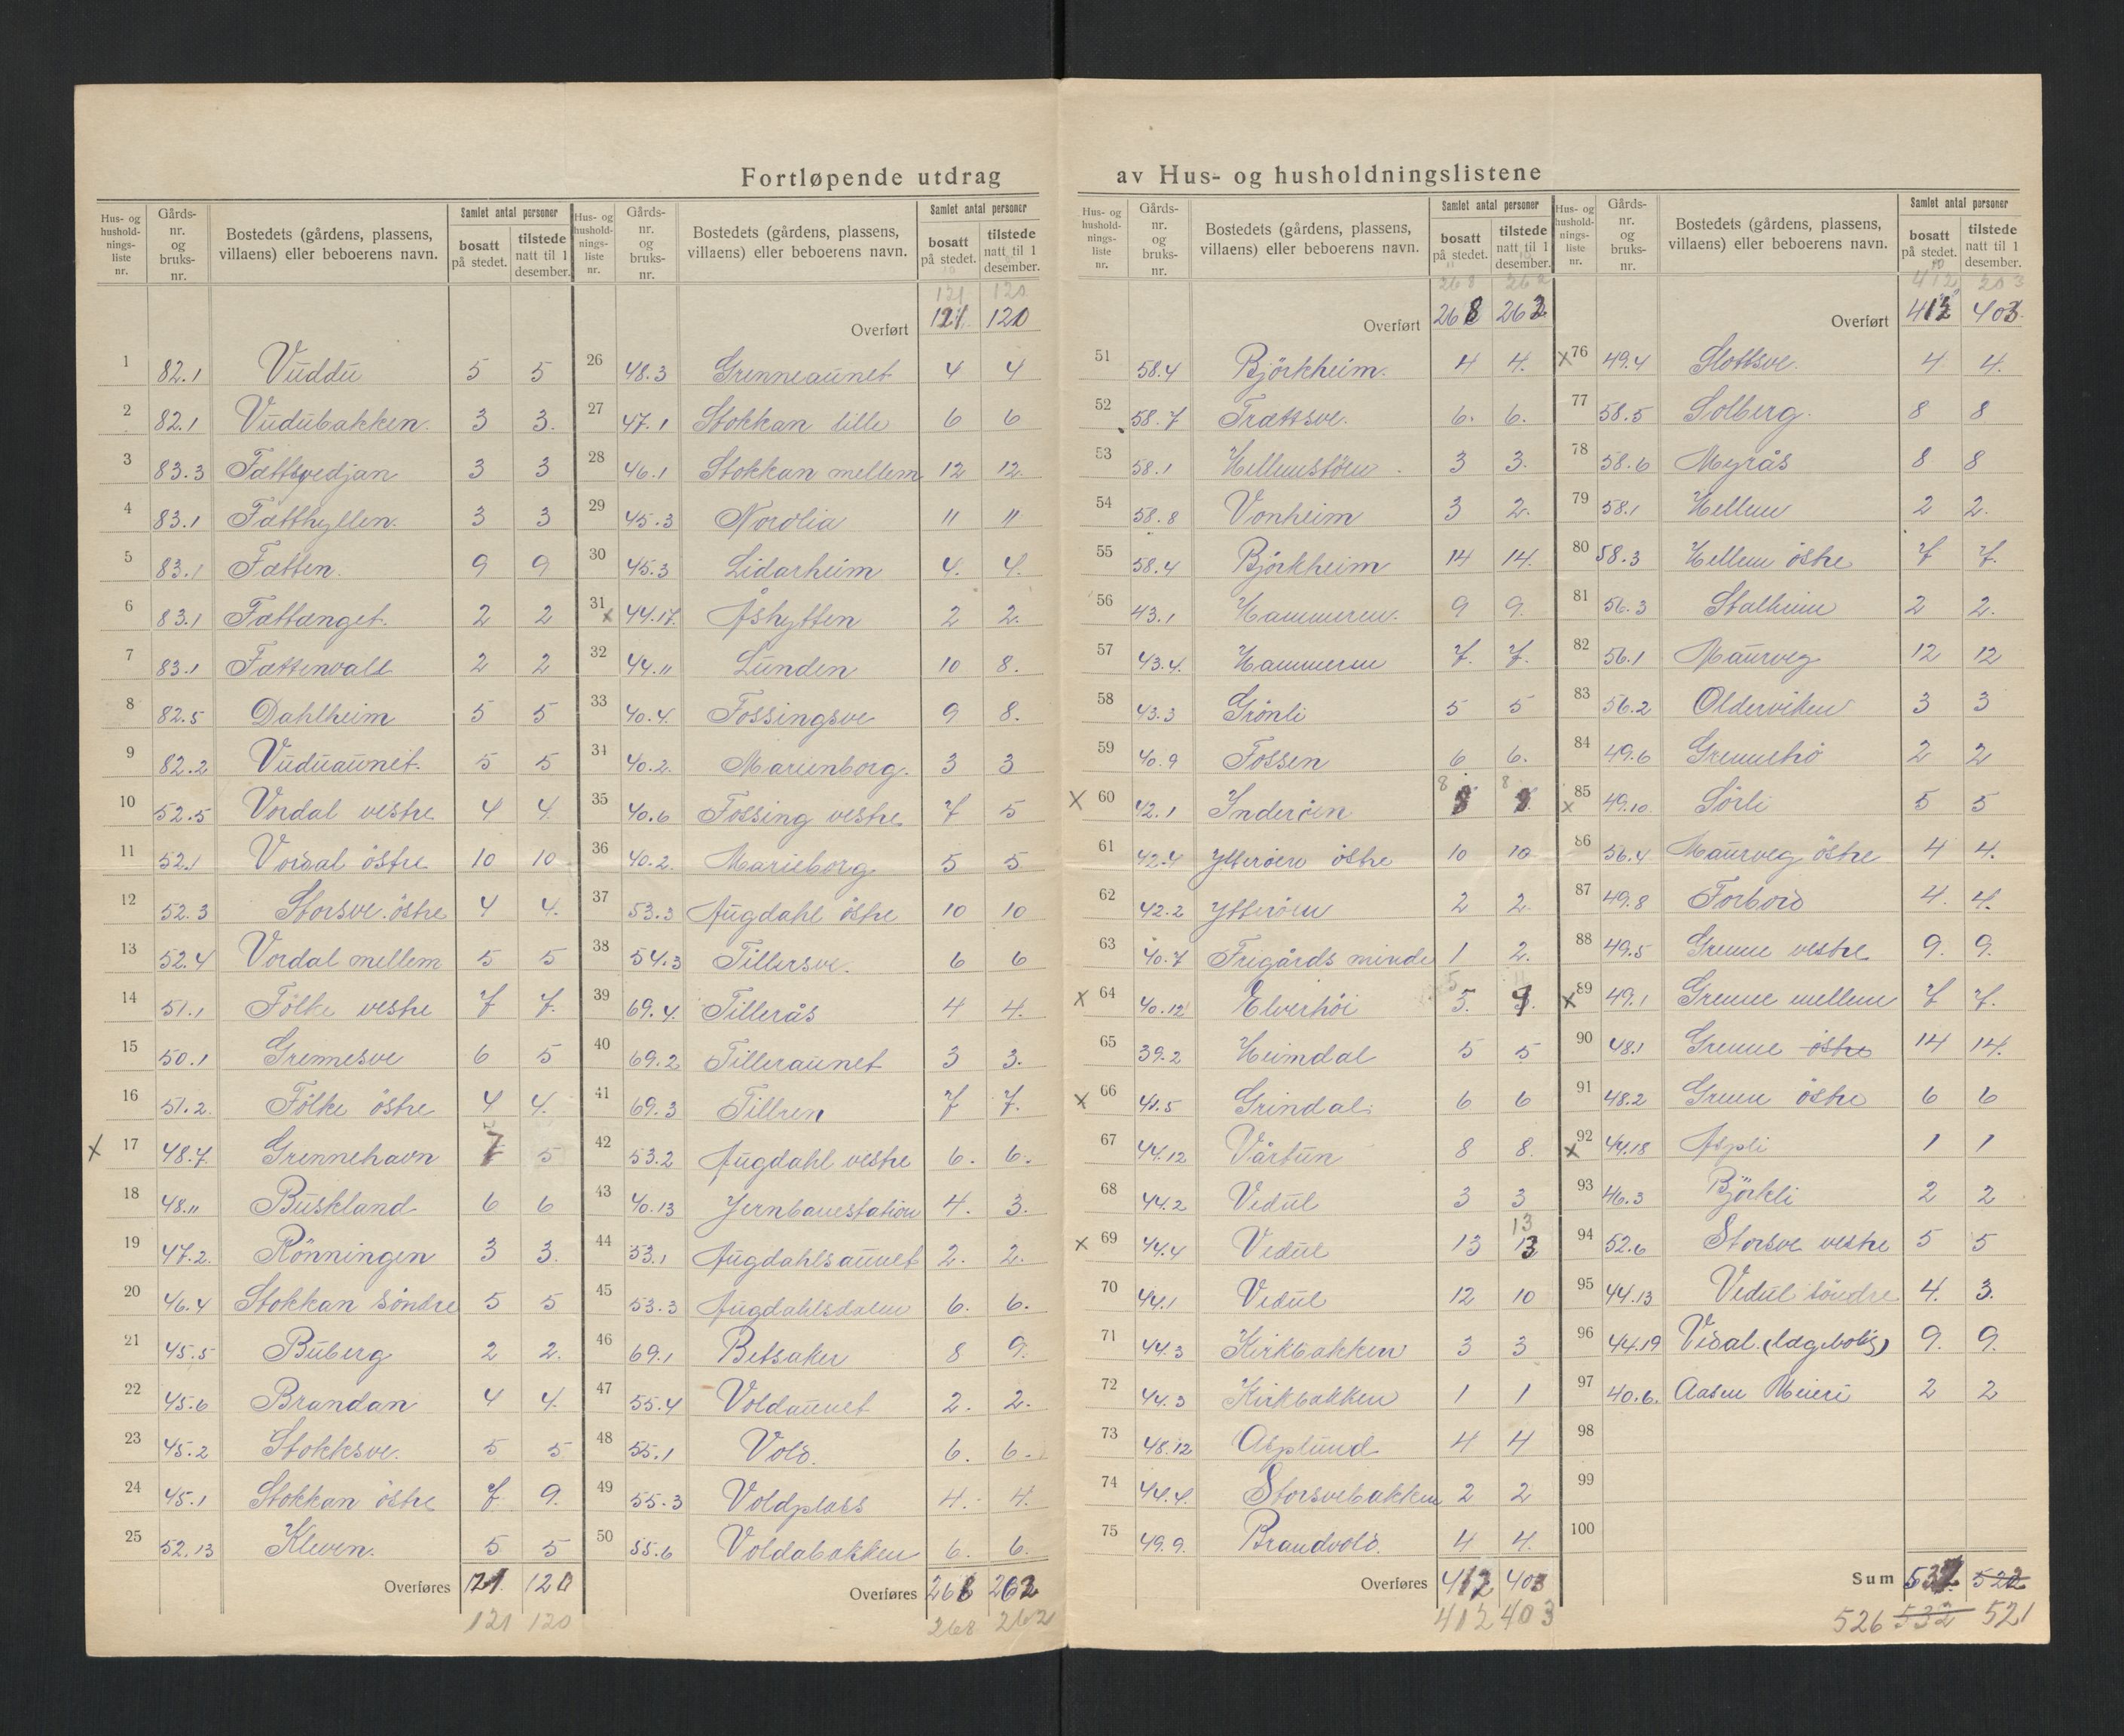 Fortløpende utdrag av Hus- og husholdningslistene
Hus- og husholdningsliste nr. | Gårds- nr. og bruks- nr. | Bostedets (gårdens, plassens, villaens) eller beboerens navn. | Samlet antal personer | bosatt på stedet. | tilstede natt til 1 desember.
1 82.1 Vuddu 5 5
2 82.1 Vudubakken. 3 3.
3 83.3 Fættsvedjan 3 3
4 83.1 Fætthyllen. 3 3
5 83.1 Fætten. 9 9
6 83.1 Fættænget. 2 2
7 83.1 Fættenvald 2 2
8 82.5 Dahlheim 5 5
9 82.2 Vuduaunet. 5 5
10 52.5 Vordal vestre 4 4.
11 52.1 Vordal östre 10 10
12 52.3 Storsve. östre 4 4.
13 52.4 Vordal mellem 5 5
14 51.1 Fölke vestre 7 7.
15 50.1 Grennesve 6 5
16 51.2. Fölke östre 4 4.
X 17 48.7. Grennehavn 7 5
18 48.11 Buskland 6 6
19 47.2. Rönningen 3 3.
20 46.4 Stokkan söndre 5 5
21 45.5 Buberg 2 2.
22 45.6 Brandan 4 4.
23 45.2 Stokksve. 5 5
24 45.1 Stokkan östre 7 9.
25 52.13 Kleven. 5 5
Overføres 121 120
121 120
Hus- og husholdningsliste nr. | Gårds- nr. og bruks- nr. | Bostedets (gårdens, plassens, villaens) eller beboerens navn. | Samlet antal personer | bosatt på stedet. | tilstede natt til 1 desember.
121 120
Overført 121 120
26 48.3 Grenneaunet 4 4
27 47.1 Stokkan lille 6 6
28 46.1 Stokkan mellem 12 12.
29 45.3 Nordlia " "
30 45.3 Lidarheim 4. 4.
31 x 44.17. Åshytten 2 2.
32 44.11 Lunden 10 8.
33 40.4. Fossingsve 9 8.
34 40.2. Marienborg. 3 3
35 40.6 Fossing vestre 7 5
36 40.2. Marieborg 5 5
37 53.3 Augdahl östre 10 10
38 54.3 Tillersve. 6 6
39 69.4. Tillerås 4 4.
40 69.2 Tilleraunet 3 3.
41 69.3 Tillren 7 7.
42 53.2 Augdahl vestre 6. 6.
43 40.13 Jernbanestation 4. 3.
44 53.1 Augdahlsaunet 2. 2.
45 53.3 Augdahlsdalen 6. 6.
46 69.1 Betsaker 8 9.
47 55.4 Voldaunet 2. 2.
48 55.1 Vold. 6. 6.
49 55.3 Voldplass 4. 4.
50 55.6 Voldabakken 6. 6.
Overføres 268 262
268 262
Hus- og husholdningsliste nr. | Gårds- nr. og bruks- nr. | Bostedets (gårdens, plassens, villaens) eller beboerens navn. | Samlet antal personer | bosatt på stedet. | tilstede natt til 1 desember.
268 262
Overført 268 262
51 58.4 Björkheim. 4 4.
52 58.7 Trættsve. 6. 6.
53 58.1 Hellemstöen. 3 3.
54 58.8 Vonheim 3 2.
55 58.4 Björkheim 14 14.
56 43.1 Hammeren. 9 9.
57 43.4. Hammeren 7. 7.
58 43.3 Grönli 5 5
59 40.9 Fossen 6 6.
X 60 42.1 Inderöen 8 8
61 42.4 Ytteröen östre 10 10
62 42.2 Ytteröen 2 2.
63 40.7 Trigårds minde 1 2.
X 64 40.12 Elverhöi 5. 4.
65 39.2 Heimdal 5 5
X 66 41.5 Grindal. 6 6
67 44.12 Vårtun 8 8.
68 44.2 Vedul 3 3
X 69 44.4 Vedul 13 13
70 44.1 Vedul 12 10
71 44.3 Kirkbakken 3 3
72 44.3 Kirkbakken 1 1
73 48.12 Asplund 4 4
74 44.4. Storsvebakken 2 2
75 49.9. Brandvold. 4 4.
Overføres 412 403
412 403
Hus- og husholdningsliste nr. | Gårds- nr. og bruks- nr. | Bostedets (gårdens, plassens, villaens) eller beboerens navn. | Samlet antal personer | bosatt på stedet. | tilstede natt til 1 desember.
Overført 412 403.
X 76 49.4 Slottsve. 4 4.
77 58.5 Solberg. 8 8
78 58.6 Myrås 8 8
79 58.1 Hellem 2 2.
80 58.3 Hellem östre 7 7.
81 56.3 Stalheim 2 2.
82 56.1 Maurveg 12 12
83 56.2 Olderviken 3 3
84 49.6 Grennehö 2 2
85 x 49.10 Sörli 5 5
86 56.4 Maurveg östre 4 4.
87 49.8 Forbord 4. 4.
88 49.5 Grenne vestre 9. 9.
X 89 49.1 Grenne mellem 7 7.
90 48.1 Grenne östre 14 14.
91 48.2 Grenne östre 6 6
X 92 44.18 Aspli 1 1
93 46.3 Björkli 2 2
94 52.6 Storsve vestre 5 5
95 44.13 Vedul söndre 4. 3.
96 44.19 Vidal. (lægebolig) 9. 9.
97 40.6. Aasen Meieri 2 2
98
99
100
Sum 532 522
526 532 521